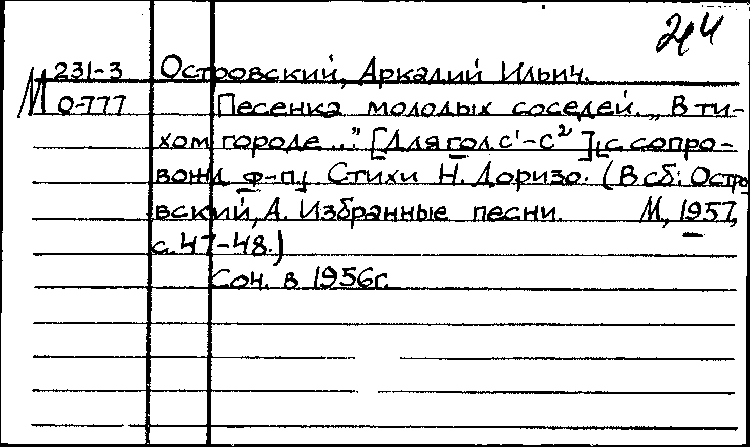 244
М 231-3 Островский, Аркадий Ильич.
О-777 Песенка молодых соседей. „В ти-
хом городе..." [Для гол. с¹-с²], с сопро-
вожд. ф-п. Стихи Н. Доризо. (В сб: Остро
вский, А. Избранные песни. М, 1957,
с. 47-48.)
Соч. в 1956г.